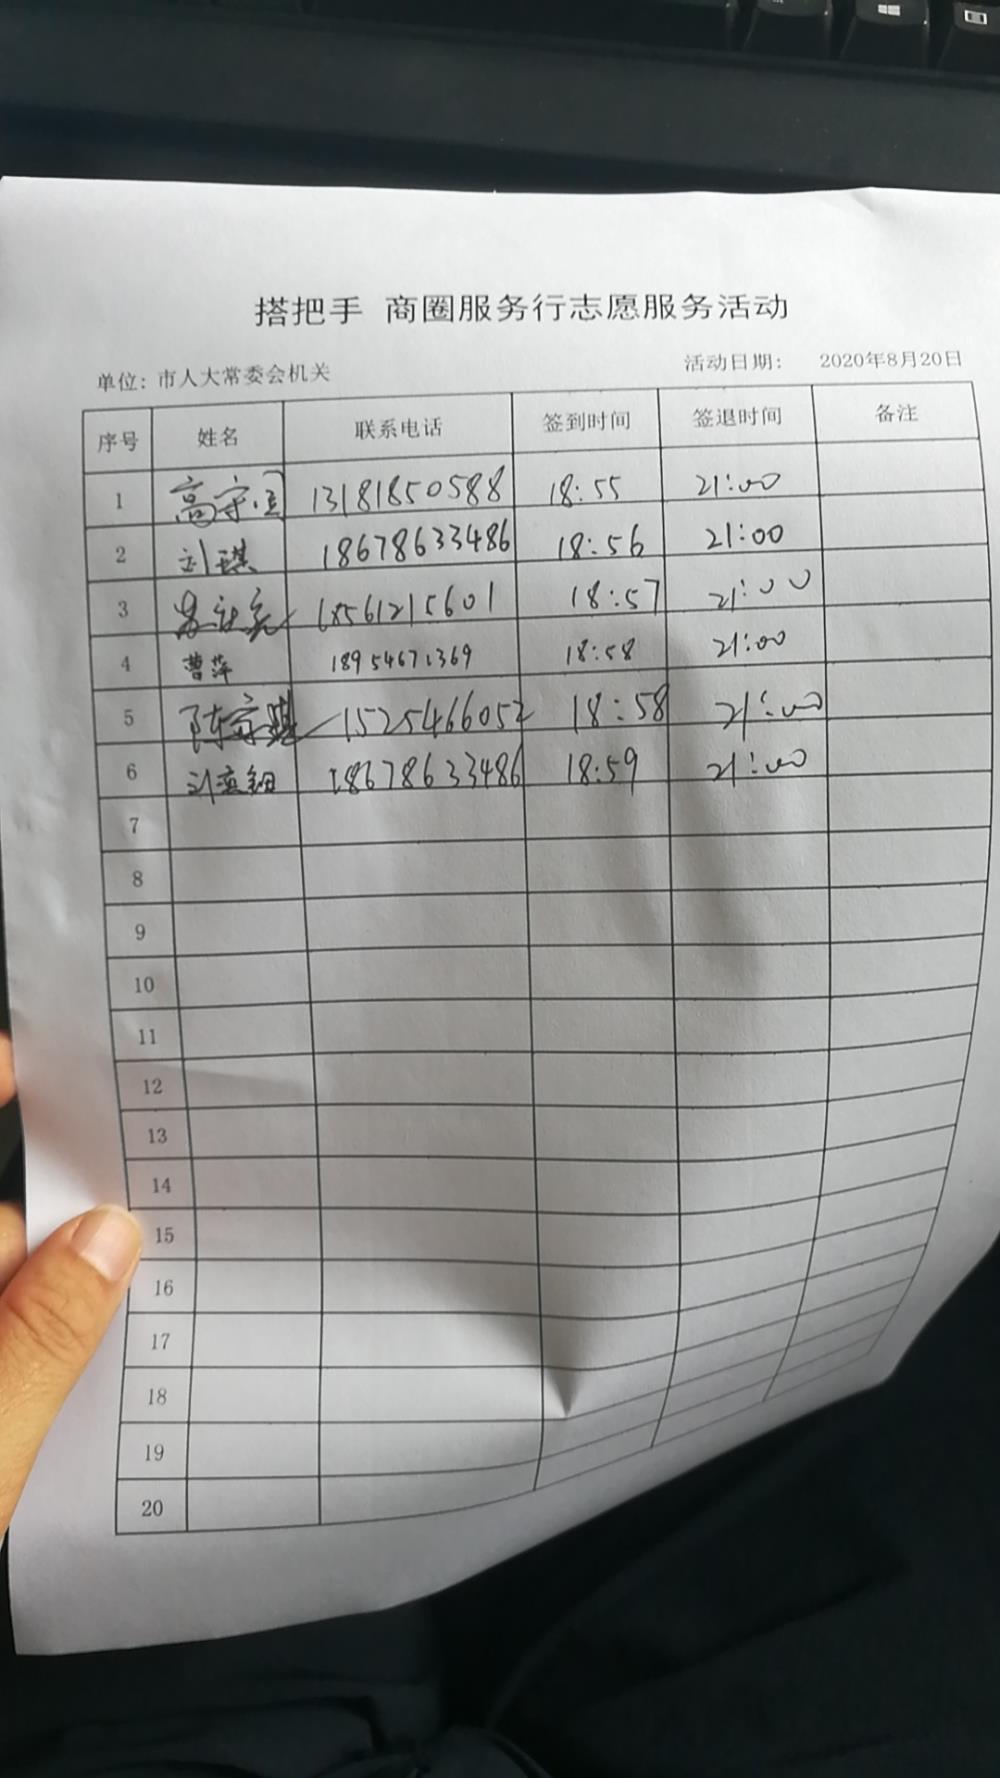 搭把手 商圈服务行志愿服务活动
单位：市人大常委会机关 活动日期： 2020年8月20日
序号 姓名 联系电话 签到时间 签退时间 备注
1 高守 13181850588 18:55 21:00
2 刘琪 18678633486 18:56 21:00
3 18561215601 18:57 21:00
4 曹萍 18954671369 18:58 21:00
5 陈 1525466052 18:58 21:00
6 刘 18678633486 18:59 21:00
7
8
9
10
11
12
13
14
15
16
17
18
19
20